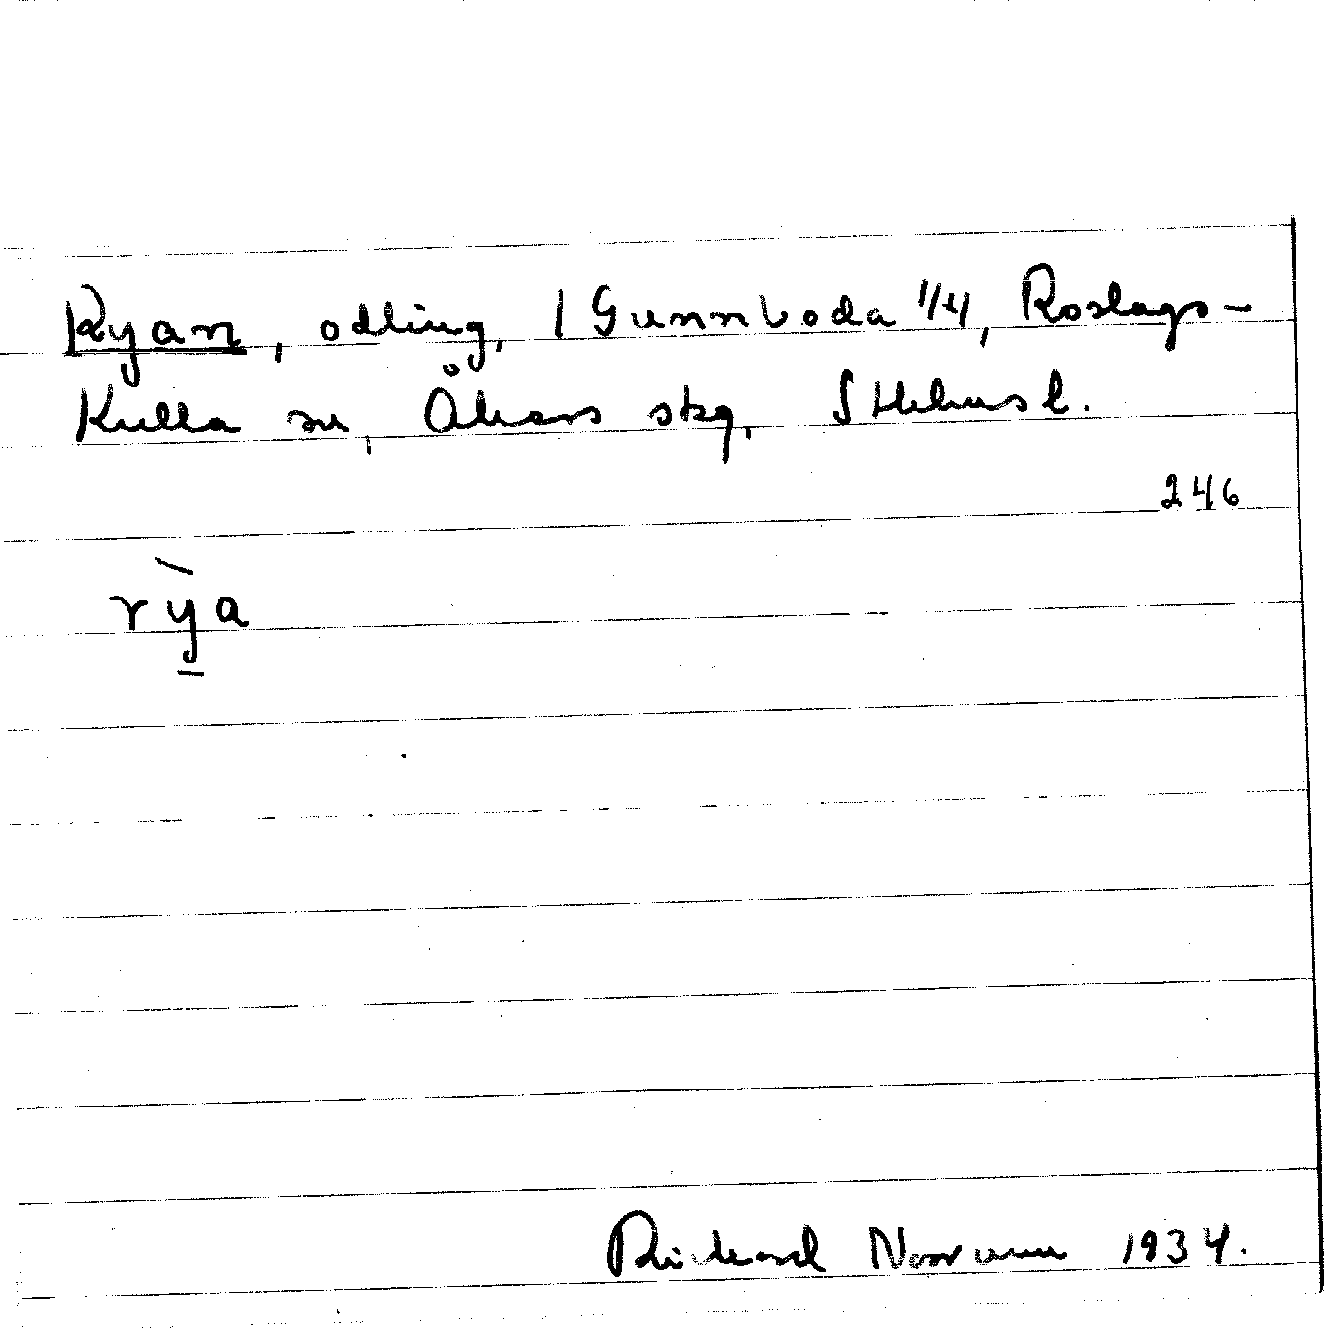 Ryan, odling, 1 Gunnboda 1/4, Roslags-
Kulla sn, Åkers skg, Sthlms l.
246
rỳa
Rickard Norrman 1934.